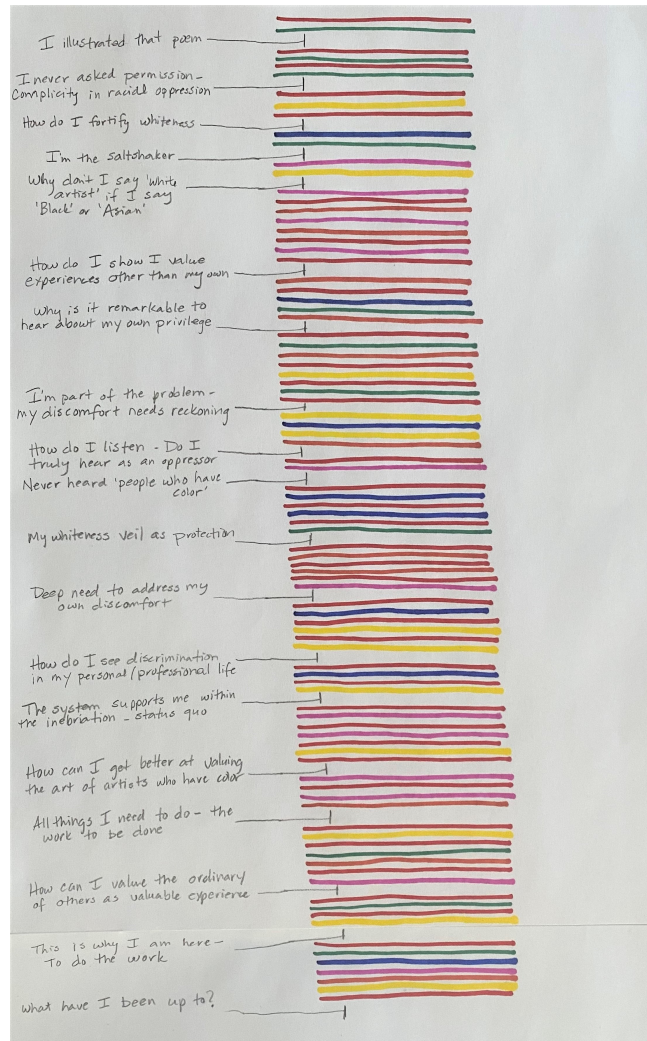 I illustrated that poem
I never asked permission -
Complicity in racial oppression
How do I fortify whiteness
I'm the saltshaker
Why don't I say 'white
artist' if I say
'Black' or 'Asian'
How do I show I value
experiences other than my own
Why is it remarkable to
hear about my own privilege
I'm part of the problem -
my discomfort needs reckoning
How do I listen - Do I
truly hear as an oppressor
Never heard 'people who have
color'
My whiteness veil as protection
Deep need to address my
own discomfort
How do I see discrimination
in my personal/professional life
The system supports me within
the inebriation - status quo
How can I get better at valuing
the art of artists who have color
All things I need to do - the
work to be done
How can I value the ordinary
of others as valuable experience
This is why I am here -
To do the work
What have I been up to?